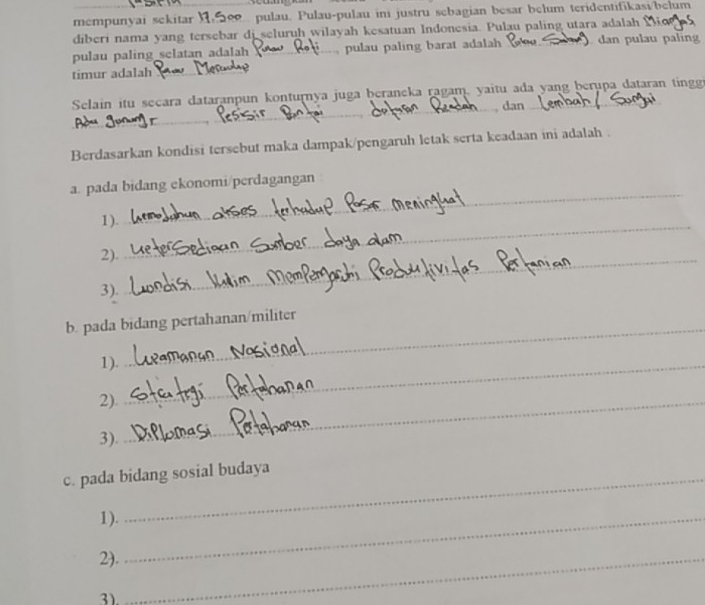 mempunyai sekitar 17.500 pulau. Pulau-pulau ini justru sebagian besar belum teridentifikasi/belum
diberi nama yang tersebar di seluruh wilayah kesatuan Indonesia. Pulau paling utara adalah Miangas
pulau paling selatan adalah Pulau Roti, pulau paling barat adalah Pulau Sabang dan pulau paling
timur adalah Pulau
Selain itu secara dataranpun konturnya juga beraneka ragam, yaitu ada yang berupa dataran tinggi
Ada gunung, Pesisir Pantai, dataran Rendah, dan Lembah / Sungai
Berdasarkan kondisi tersebut maka dampak/pengaruh letak serta keadaan ini adalah :
a. pada bidang ekonomi/perdagangan :
1). kemudahan akses terhadap Pasar meningkat
2). ketersediaan Sumber daya alam
3). kondisi iklim mempengaruhi Produktivitas Pertanian
b. pada bidang pertahanan/militer
1). keamanan Nasional
2). Strategi Pertahanan
3). Diplomasi Pertahanan
c. pada bidang sosial budaya
1).
2).
3).